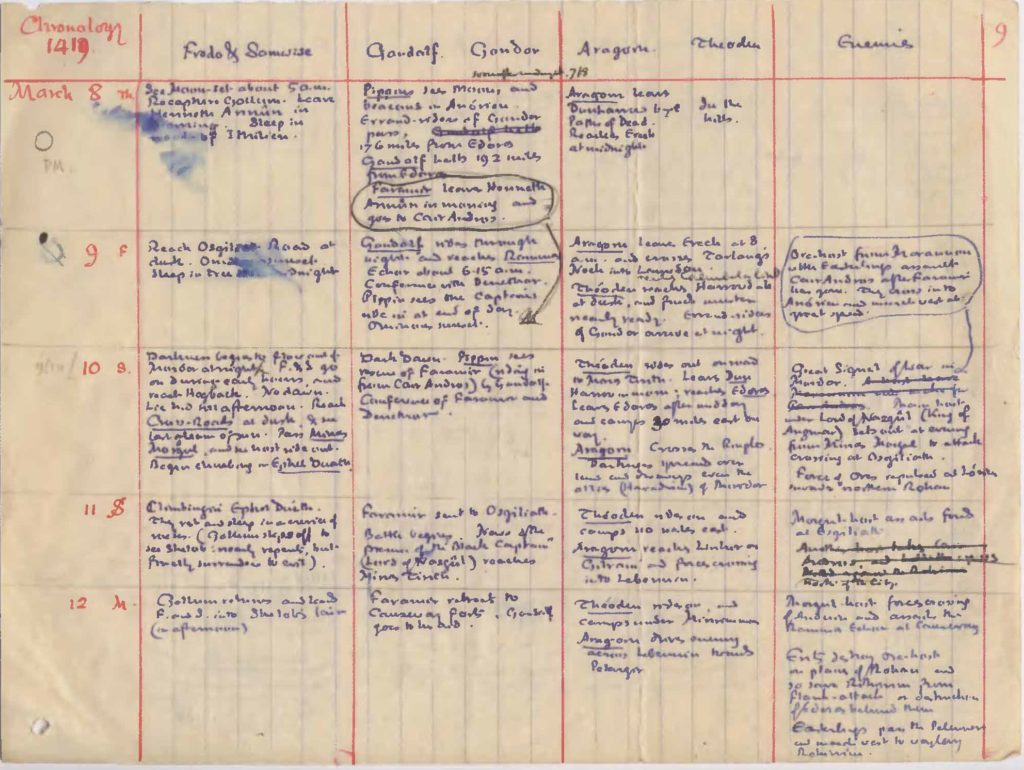 Chronology
1419
9
Frodo & Samwise
Gandalf. Gondor
Aragorn. Theoden
Enemies
March 8 th
See Moon-set about 5 a.m.
Recapture Gollum. Leave
Henneth Annûn in
morning. Sleep in
woods of Ithilien.
Pippin sees Moon, and
beacons in Anórien.
Errand-riders of Gondor
pass,
176 miles from Edoras
Gandalf halts 192 miles
from Edoras
Faramir leaves Henneth
Annûn in morning and
goes to Cair Andros.
Aragorn leaves
Dunharrow by
Paths of Dead.
Reaches Erech
at midnight
In the
hills.
PM.
9 F
Reach Osgiliath Road at
dusk.
Sleep in tree
Gandalf rides through
night and reaches Rammas
Echor about 6.15 a.m.
Conference with Denethor.
Pippin sees the Captains
ride in at end of day.
Ominous sunset.
Aragorn leaves Erech at 8
a.m. and crosses Tarlang's
Neck into Lamedon.
Théoden reaches Harrowdale
at dusk, and finds muster
nearly ready. Errand-riders
of Gondor arrive at night.
Orc-host from Morannon
with Easterlings assault
Cair Andros after Faramir
has gone. They cross into
Anórien and march west at
great speed.
10 S.
Darkness begins to flow out of
Mordor at night. F. & S go
on during early hours, and
reach Hogback. No dawn.
Lie hid till afternoon. Reach
Cross-Roads at dusk, & see
last gleam of sun. Pass Minas
Morgul, and see host ride out.
Began climbing in Ephel Duath.
Dark Dawn. Pippin sees
rescue of Faramir (riding in
from Cair Andros) by Gandalf.
Conference of Faramir and
Denethor.
Théoden rides out on road
to Minas Tirith. Leaves Dun
Harrow in morn; reaches Edoras
Leaves Edoras after midday
and camps 30 miles east on
way.
Aragorn Crosses the Ringlo
Darkness spreads over
land and dismays even the
allies (Haradrim) of Mordor
Great Signal of War in
Mordor.
Main host
under Lord of Nazgûl (King of
Angmar) sets out at evening
from Minas Morgul to attack
crossing at Osgiliath
Force of Orcs repulsed at Lórien
northern Rohan
11 S
Climbing in Ephel Duath.
They rest and sleep in a crevice of
rocks. (Gollum steps off to
see Shelob: nearly repents, but
finally surrenders to evil).
Faramir sent to Osgiliath.
Battle begins. News of the
presence of the "Black Captain"
(Lord of Nazgûl) reaches
Minas Tirith.
Théoden rides on and
camps 110 miles east.
Aragorn reaches Linhir on
Gilrain and forces crossing
into Lebennin.
Morgul-host assails fords
at Osgiliath
North of the City.
12 M.
Gollum returns and leads
F. and S. into Shelob's lair
(in afternoon)
Faramir retreats to
Causeway Forts. Gandalf
goes to his aid.
Théoden rides on, and
camps under Minrimmon
Aragorn drives enemy
across Lebennin towards
Pelargir
Morgul-host forces crossing
of Anduin and assails the
Rammas Echor at Causeway
Ents destroy orc-host
on plains of Rohan and
so save Rohirrim from
flank-attack or destruction
of Edoras behind them
Easterlings pass the Pelennor
and march west to waylay
Rohirrim.